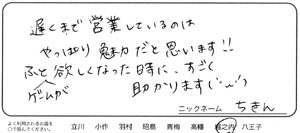 遅くまで営業しているのは
やっぱり魅力だと思います!!
ふと欲しくなった時に、すごく
ゲームが
助かります(¨)
ニックネーム ちきん
よく利用されるお店を
○で囲んでください。
立川 小作 羽村 昭島 青梅 高幡 堀之内 八王子